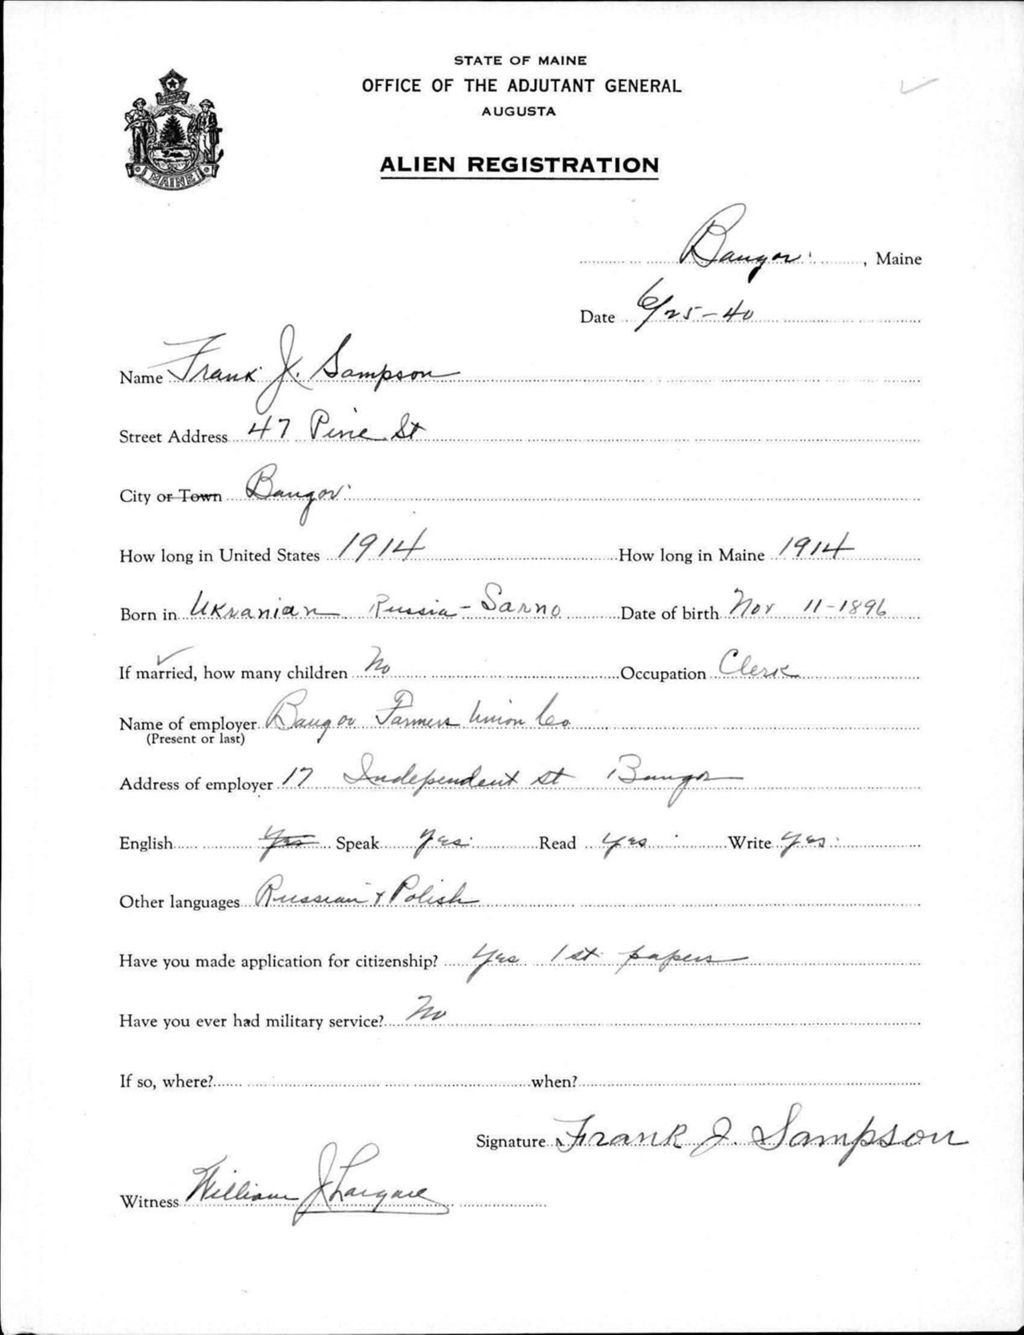 STATE OF MAINE
OFFICE OF THE ADJUTANT GENERAL
AUGUSTA
ALIEN REGISTRATION
MAINE
Bangor, Maine
Date 6/25-40
Name Frank J. Sampson
Street Address 47 Pine St
City or Town Bangor
How long in United States 1914 How long in Maine 1914
Born in Ukranian Russia - Sarno Date of birth Nov 11-1896
If married, how many children No Occupation Clerk
Name of employer Bangor Farmers Union Co
(Present or last)
Address of employer 17 Independent St Bangor
English Yes Speak Yes Read Yes Write Yes
Other languages Russian & Polish
Have you made application for citizenship? Yes 1st papers
Have you ever had military service? No
If so, where? when?
Signature Frank J. Sampson
Witness William J